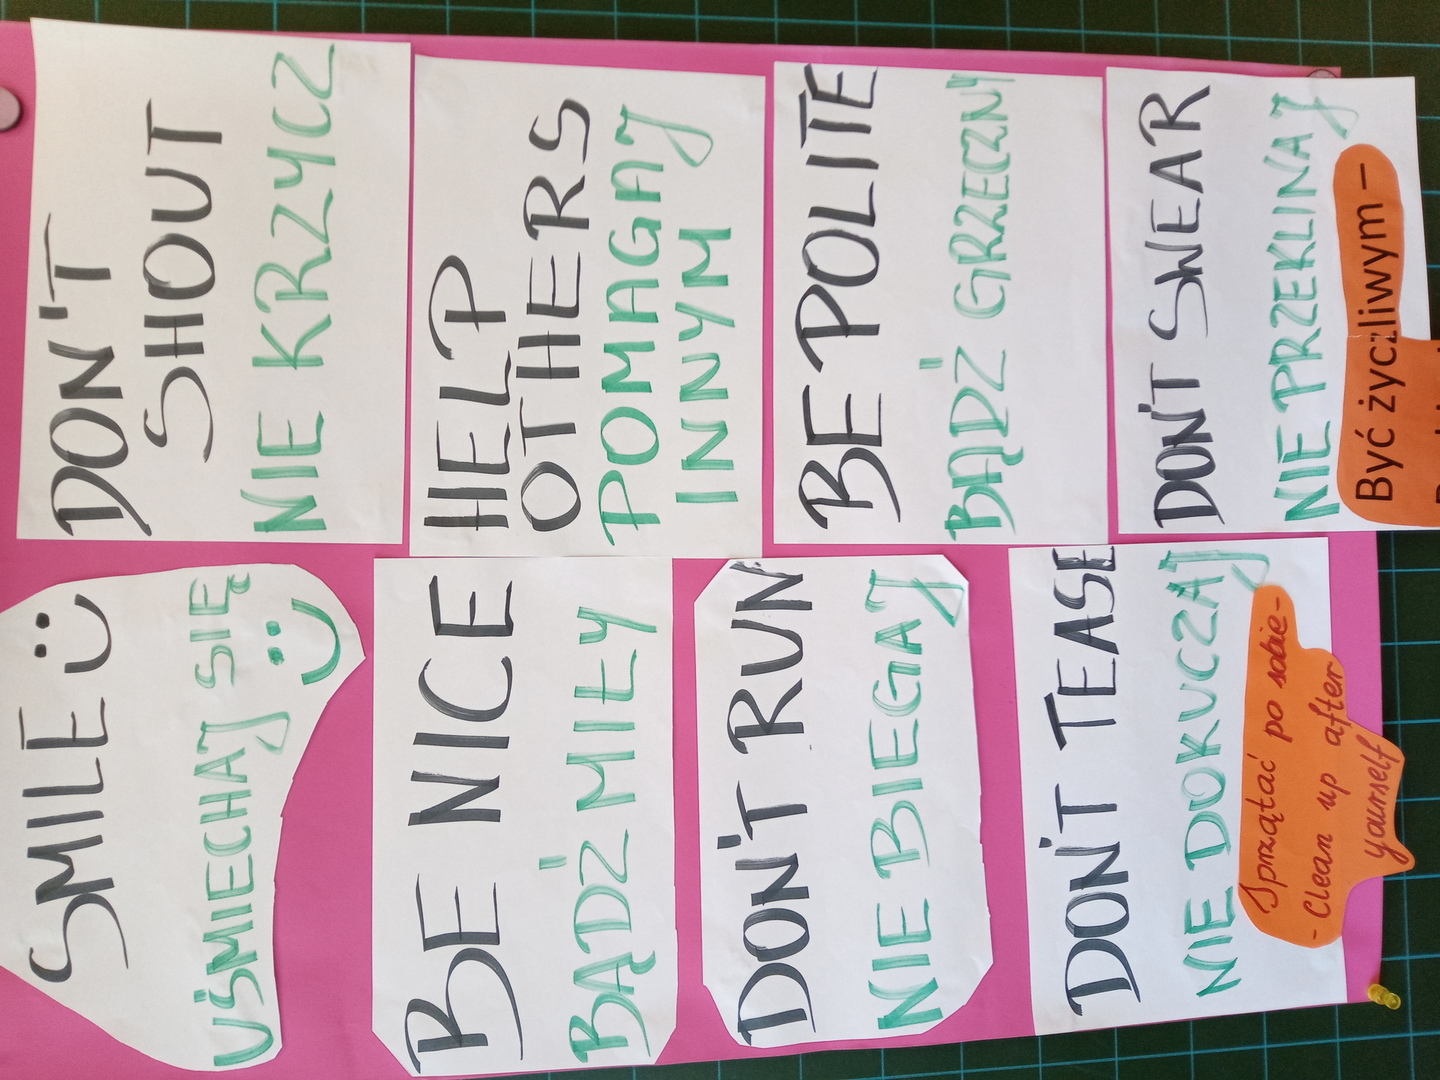 SMILE
UŚMIECHAJ SIĘ
DON'T
SHOUT
NIE KRZYCZ
BE NICE
BĄDŹ MIŁY
HELP
OTHERS
POMAGAJ
INNYM
DON'T RUN
NIE BIEGAJ
BE POLITE
BĄDŹ GRZECZNY
DON'T TEASE
NIE DOKUCZAJ
Sprzątać po sobie-
- Clean up after
yourself
DON'T SWEAR
NIE PRZEKLINAJ
Być życzliwym –